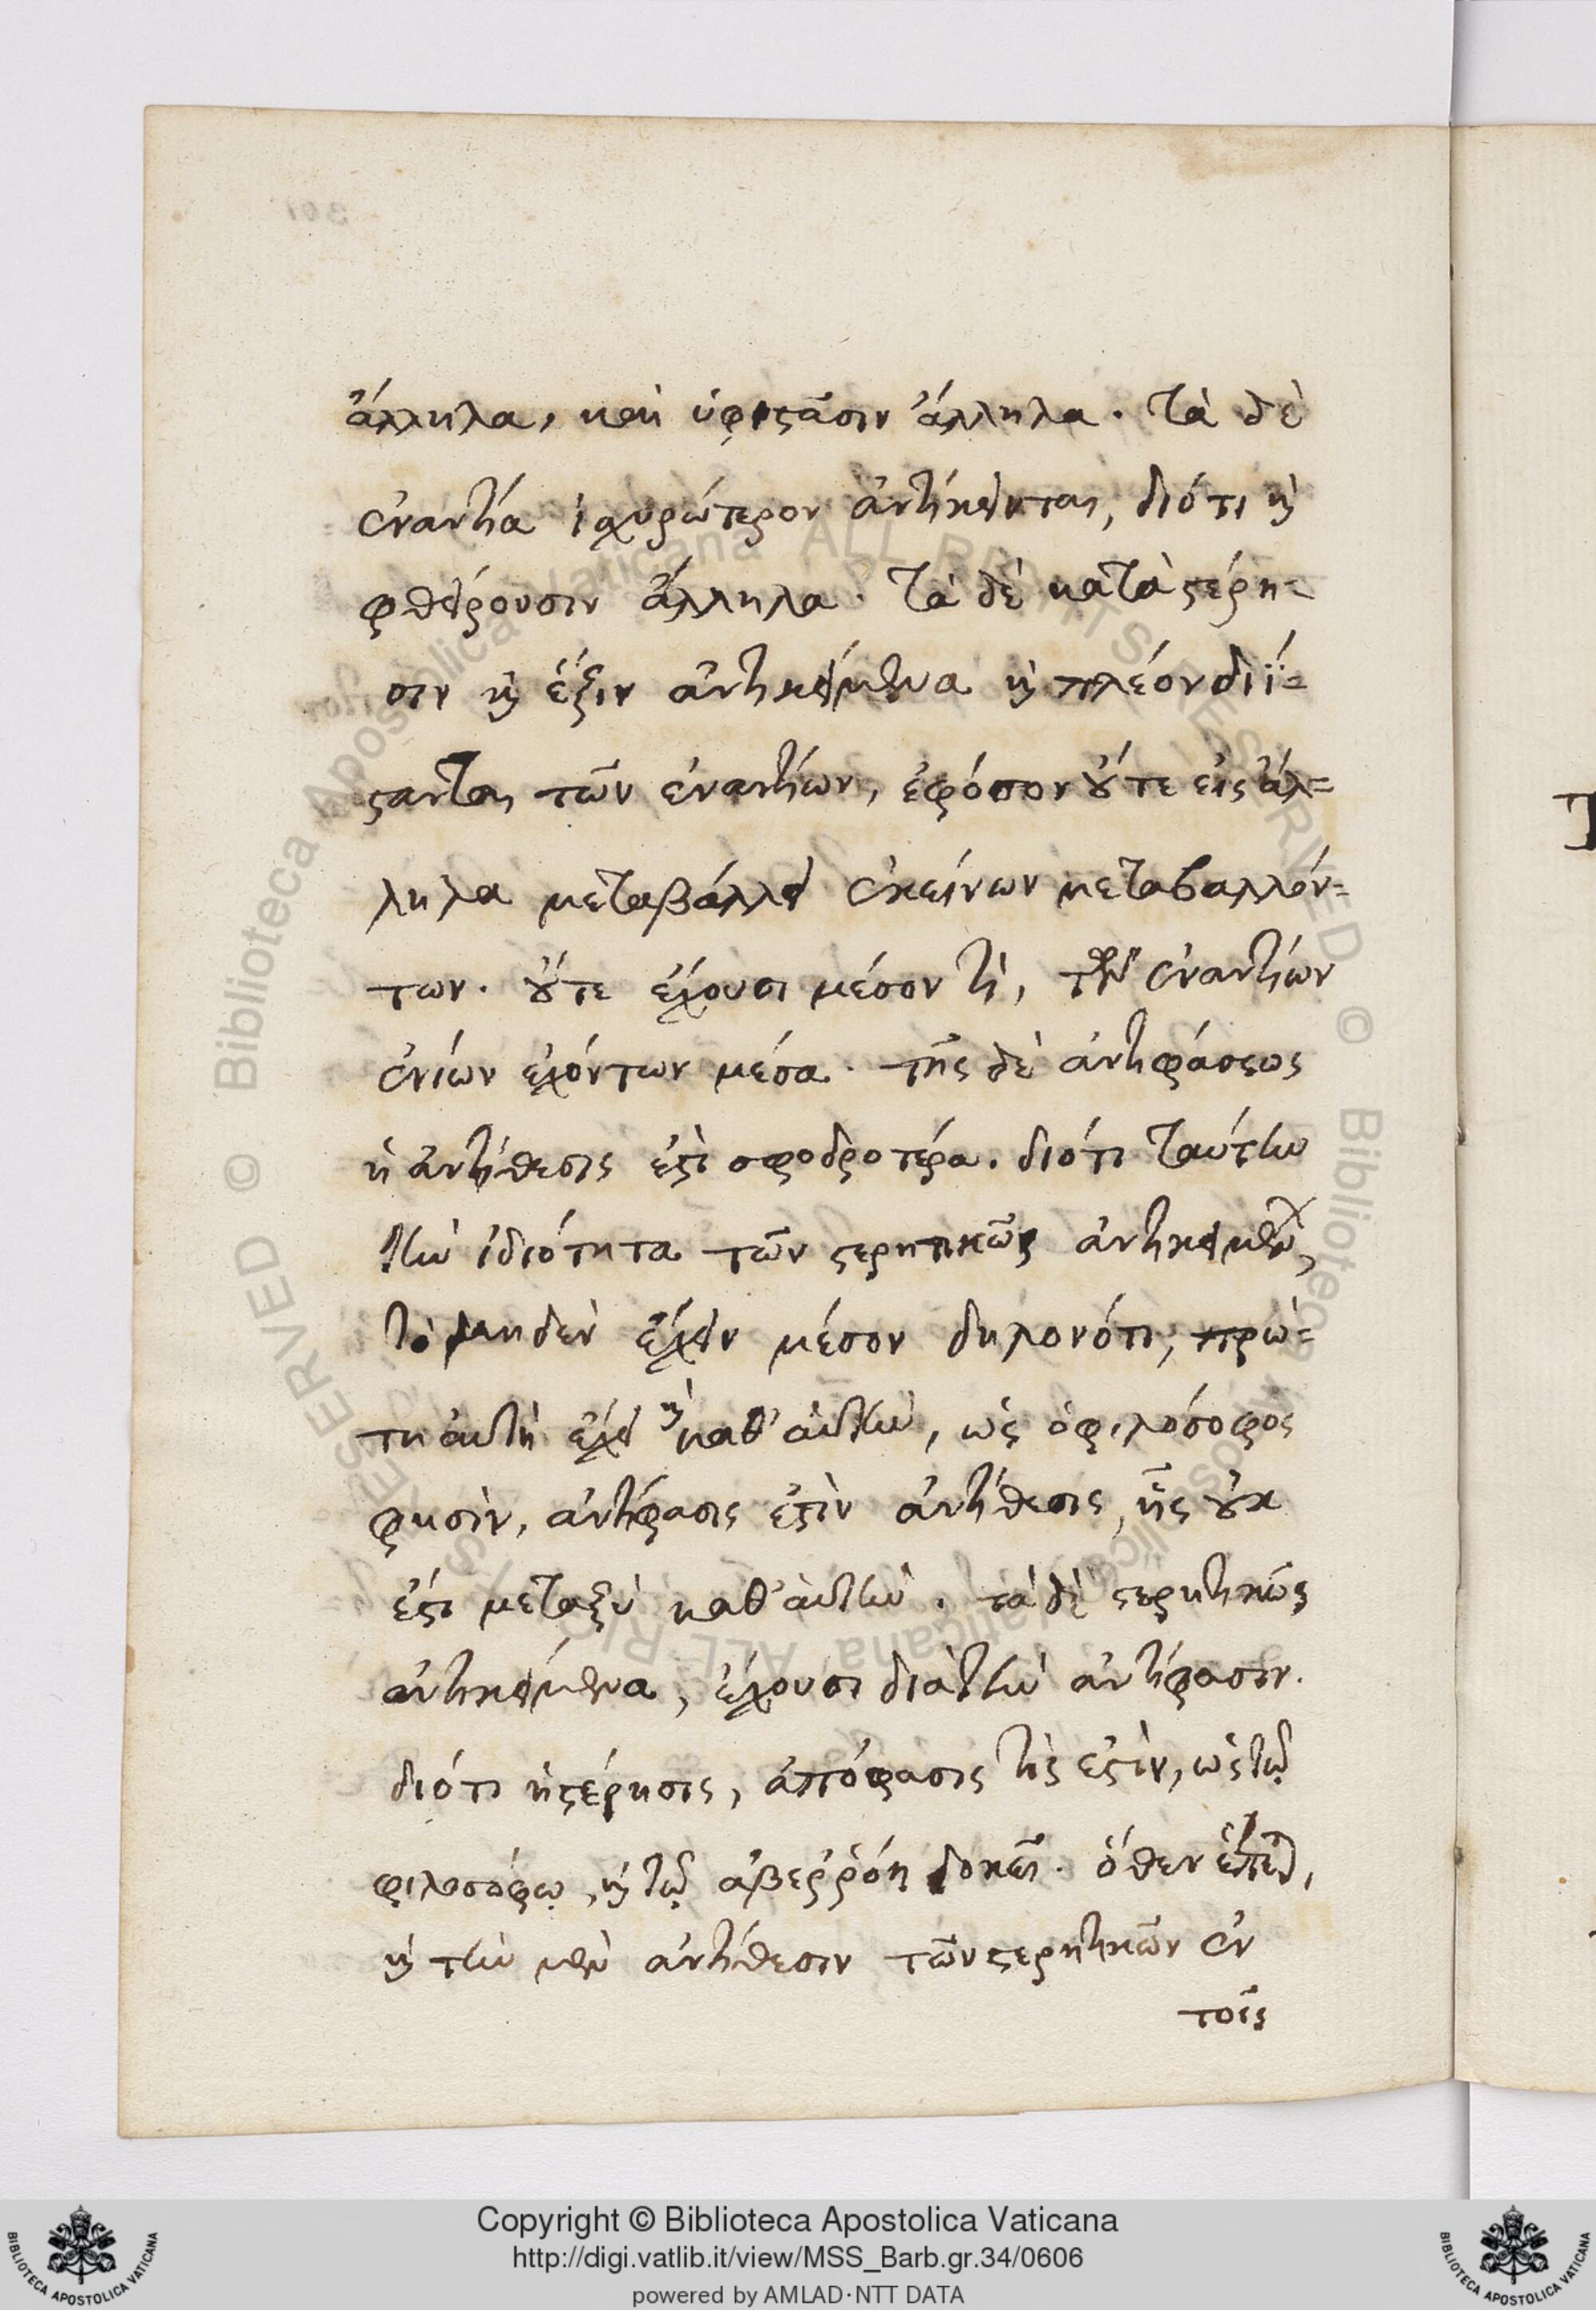 ἄλληλα, καὶ ὑφιστᾶσιν ἄλληλα. τὰ δὲ
ἐναντία ἰσχυρώτερον ἀντίκεινται, διότι καὶ
φθείρουσιν ἄλληλα. τὰ δὲ κατὰ στέρη=
σιν καὶ ἕξιν ἀντικείμενα καὶ πλέον διΐ=
στανται τῶν ἐναντίων, ἐφόσον οὔτε εἰς ἄλ=
ληλα μεταβάλλει ἐκείνων μεταβαλλόν=
των. οὔτε ἔχουσι μέσον τὶ, τῶν ἐναντίων
ἐνίων ἐχόντων μέσα. τῆς δὲ ἀντιφάσεως
ἡ ἀντίθεσις ἐστὶ σφοδροτέρα. διότι ταύτην
τὴν ἰδιότητα τῶν στερητικῶς ἀντικειμένων,
τὸ μηδὲν ἔχειν μέσον δηλονότι, πρώ=
τη αὐτὴ ἔχει καὶ καθ' αὑτὴν, ὡς ὁ φιλόσοφος
φησὶν, ἀντίφασις ἐστὶν ἀντίθεσις, ἧς οὐκ
ἔστι μεταξὺ καθ' αὑτὴν. τὰ δὲ στερητικῶς
ἀντικείμενα, ἔχουσι διὰ τὴν ἀντίφασιν.
διότι ἡ στέρησις, ἀπόφασις τὶς ἐστὶν, ὡς τῷ
φιλοσόφῳ, καὶ τῷ ἀβεῤῥόῃ δοκεῖ. ὅθεν ἕπεται,
καὶ τὴν μὲν ἀντίθεσιν τῶν στερητικῶν ἐν
τοῖς
Copyright © Biblioteca Apostolica Vaticana
http://digi.vatlib.it/view/MSS_Barb.gr.34/0606
powered by AMLAD·NTT DATA